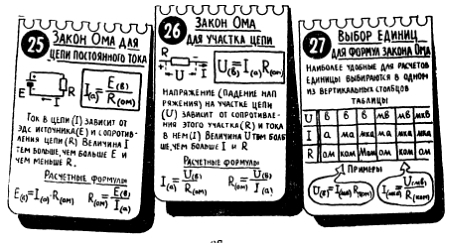 25
ЗАКОН ОМА ДЛЯ
ЦЕПИ ПОСТОЯННОГО ТОКА
E
R
I
I(а) = E(в) / R(ом)
ТОК В ЦЕПИ (I) ЗАВИСИТ ОТ
ЭДС ИСТОЧНИКА (E) И СОПРОТИВ-
ЛЕНИЯ ЦЕПИ (R) ВЕЛИЧИНА I
ТЕМ БОЛЬШЕ, ЧЕМ БОЛЬШЕ E И
ЧЕМ МЕНЬШЕ R.
РАСЧЕТНЫЕ ФОРМУЛЫ
E(в)=I(а)·R(ом) R(ом)= E(в) / I(а)
26
ЗАКОН ОМА
ДЛЯ УЧАСТКА ЦЕПИ
R
I
U
U(в)=I(а)R(ом)
НАПРЯЖЕНИЕ (ПАДЕНИЕ НАП
РЯЖЕНИЯ) НА УЧАСТКЕ ЦЕПИ
(U) ЗАВИСИТ ОТ СОПРОТИВЛЕ-
НИЯ ЭТОГО УЧАСТКА (R) И ТОКА
В НЕМ (I) ВЕЛИЧИНА U ТЕМ БОЛЬ
ШЕ, ЧЕМ БОЛЬШЕ I И R
РАСЧЕТНЫЕ ФОРМУЛЫ
I(а)= U(в) / R(ом) R(ом)= U(в) / I(а)
27
ВЫБОР ЕДИНИЦ
ДЛЯ ФОРМУЛ ЗАКОНА ОМА
НАИБОЛЕЕ УДОБНЫЕ ДЛЯ РАСЧЕТОВ
ЕДИНИЦЫ ВЫБИРАЮТСЯ В ОДНОМ
ИЗ ВЕРТИКАЛЬНЫХ СТОЛБЦОВ
ТАБЛИЦЫ
U В В В МВ МВ МКВ
I А МА МКА МА МКА МКА
R ОМ КОМ МОМ ОМ КОМ ОМ
ПРИМЕРЫ